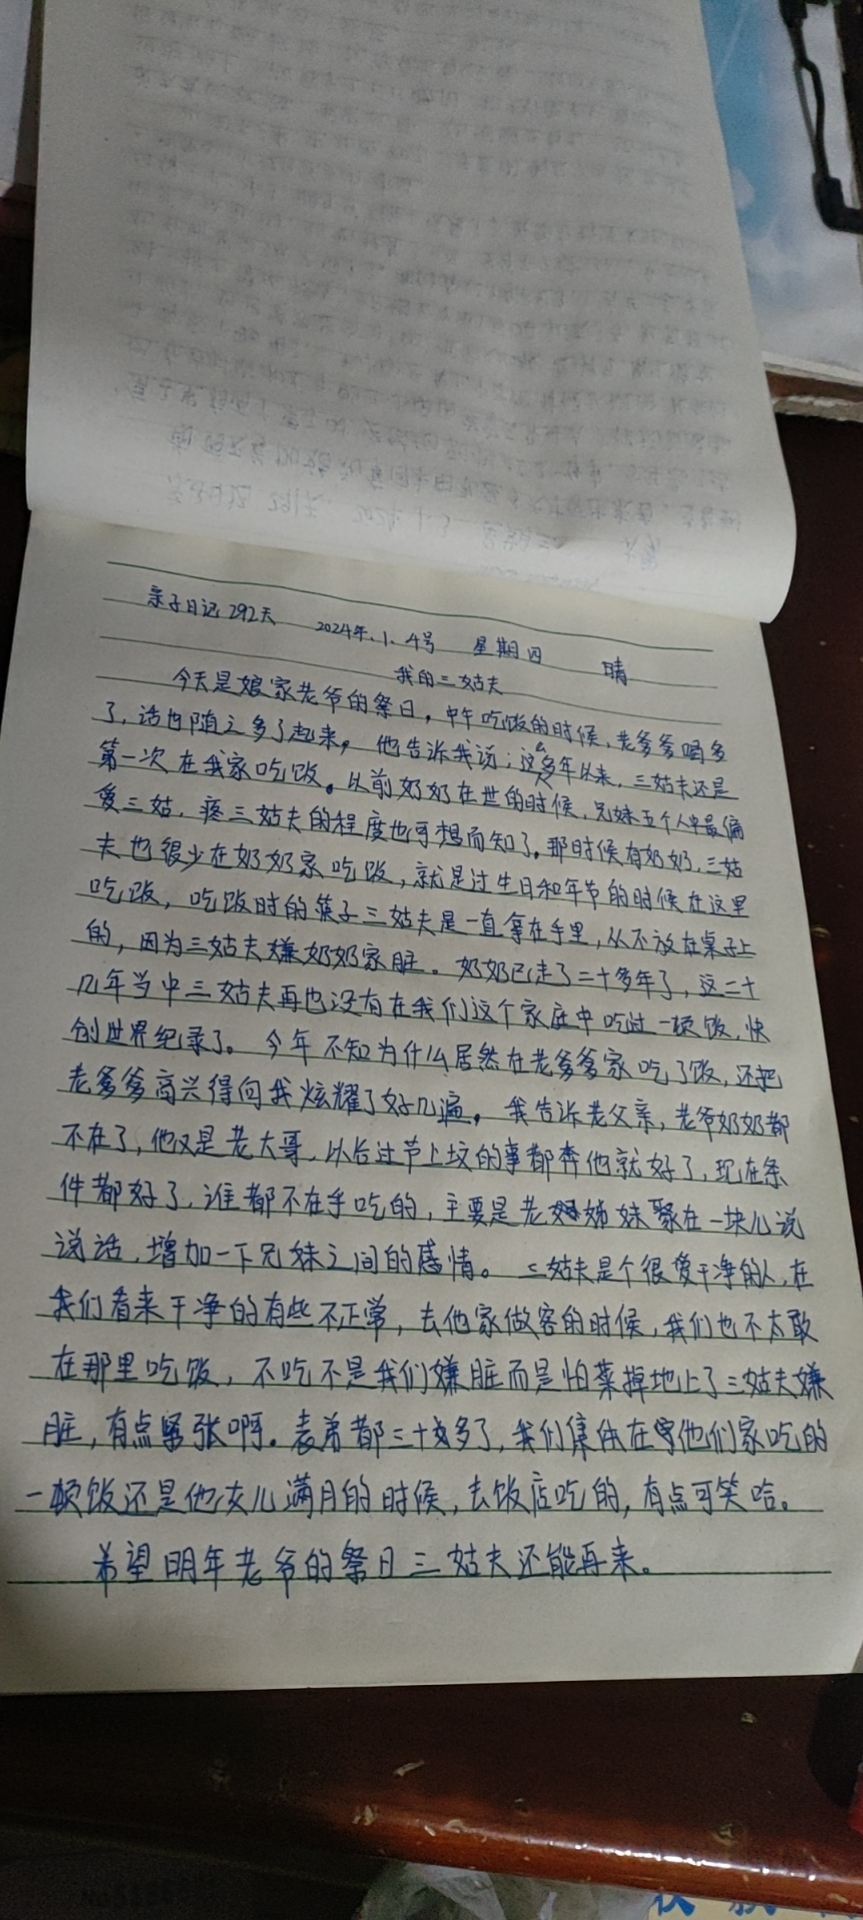 亲子日记292天 2024年.1.4号 星期四 晴
我的三姑夫
今天是娘家老爷的祭日，中午吃饭的时候，老爹爹喝多
了，话也随之多了起来，他告诉我说：这么多年以来，三姑夫还是
第一次在我家吃饭。以前奶奶在世的时候，兄妹五个人中最偏
爱三姑，疼三姑夫的程度也可想而知了。那时候有奶奶，三姑
夫也很少在奶奶家吃饭，就是过生日和年节的时候在这里
吃饭，吃饭时的筷子三姑夫是一直拿在手里，从不放在桌子上
的，因为三姑夫嫌奶奶家脏。奶奶已走了二十多年了，这二十
几年当中三姑夫再也没有在我们这个家庭中吃过一顿饭，快
创世界纪录了。今年不知为什么居然在老爹爹家吃了饭，还把
老爹爹高兴得向我炫耀了好几遍。我告诉老父亲，老爷奶奶都
不在了，他又是老大哥，以后过节上坟的事都奔他就好了，现在条
件都好了，谁都不在乎吃的，主要是老姊妹聚在一块儿说
说话，增加一下兄妹之间的感情。三姑夫是个很爱干净的人，在
我们看来干净的有些不正常，去他家做客的时候，我们也不太敢
在那里吃饭，不吃不是我们嫌脏而是怕菜掉地上了三姑夫嫌
脏，有点紧张啊。表弟都三十好多了，我们集体在他们家吃的
一顿饭还是他女儿满月的时候，去饭店吃的，有点可笑哈。
希望明年老爷的祭日三姑夫还能再来。